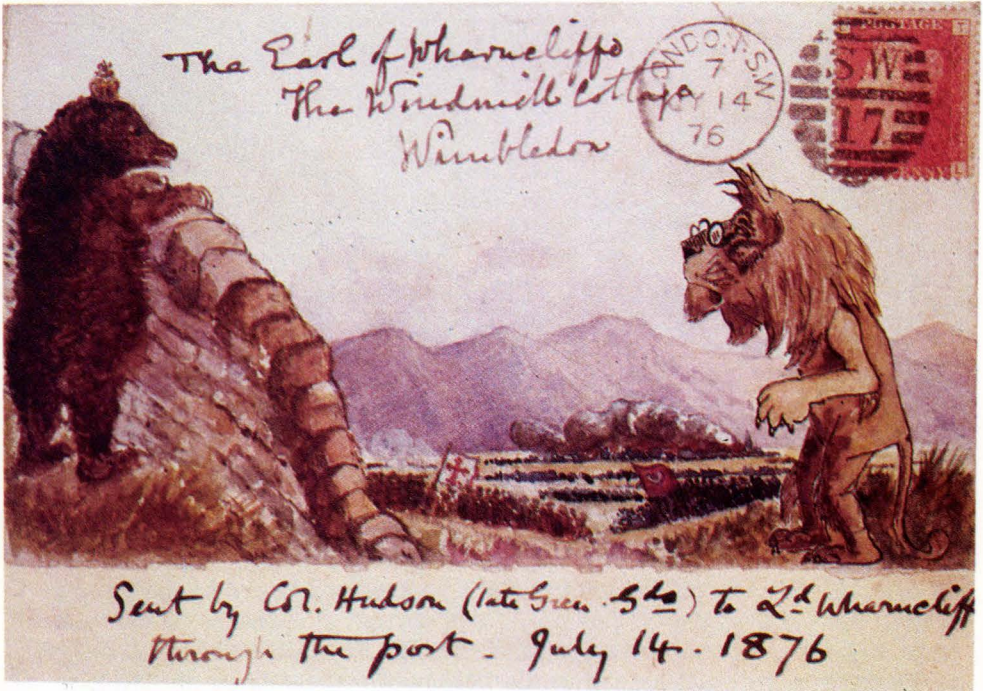 The Earl of Wharncliffe
The Windmill Cottage
Wimbledon
LONDON. S.W
7
JY 14
76
POSTAGE
T
SW
17
L
Sent by Col. Hudson (late Gren. Gds) to Ld Wharncliff
through the post. July 14. 1876